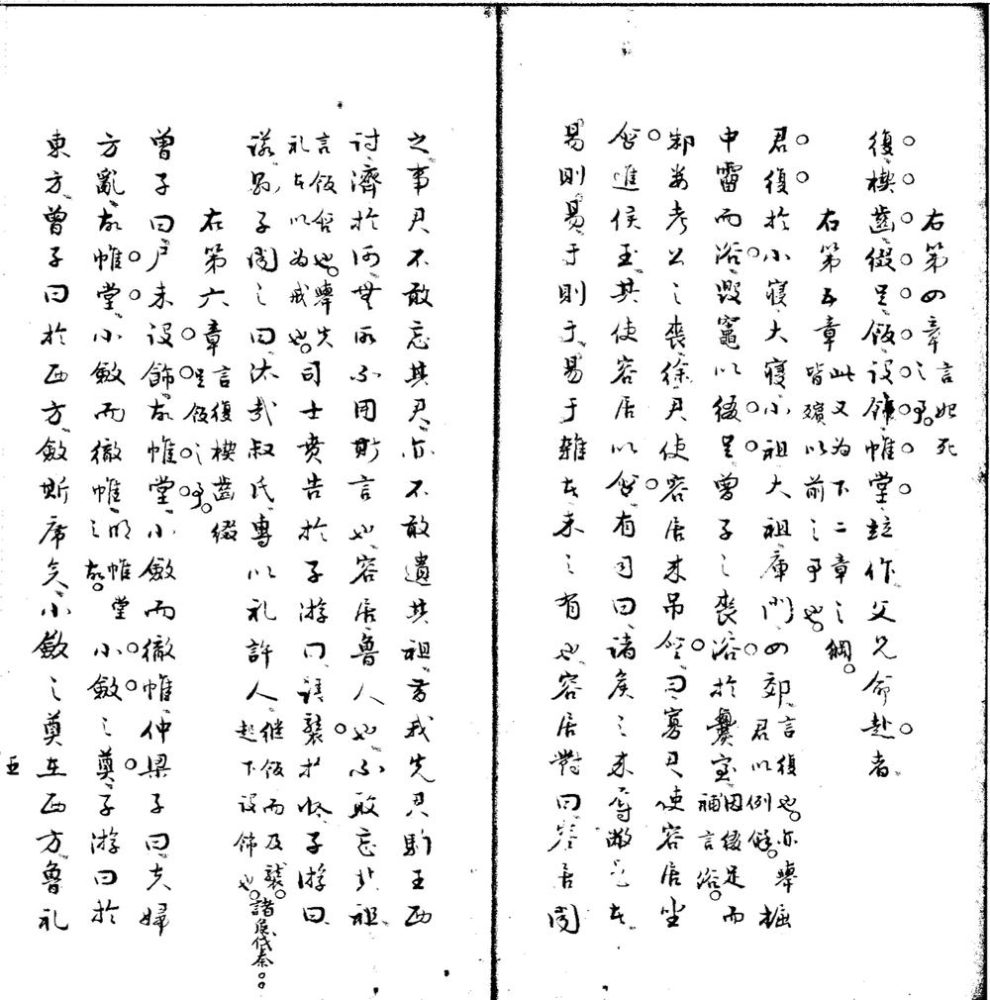 右第四章言始死之事
復楔齒綴足飯設飾帷堂並作父兄命赴者
右第五章此又為下二章之綱皆殯以前之事也
君復於小寢大寢小祖大祖庫門四郊言復也亦舉君以例餘掘
中霤而浴毀竈以綴足曾子之喪浴於爨室因綴足而補言浴
邾婁考公之喪徐君使容居來弔含曰寡君使容居坐
含進侯玉其使容居以含有司曰諸侯之來辱敝邑者
易則易于則于易于雜者未之有也容居對曰容居聞
之事君不敢忘其君亦不敢遺其祖昔我先君駒王西
討濟於河無所不用斯言也容居魯人也不敢忘其祖
言飯含也舉失禮者以為戒也司士賁告於子游曰請襲於牀子游曰
諾縣子聞之曰汰哉叔氏專以礼許人继飯而及襲起下設飾也諸侯伐秦
右第六章言復楔齒綴足飯之事
曾子曰尸未設飾故帷堂小斂而徹帷仲梁子曰夫婦
方亂故帷堂小斂而徹帷明帷堂之故小斂之奠子游曰於
東方曾子曰於西方斂斯席矣小斂之奠在西方魯礼
五